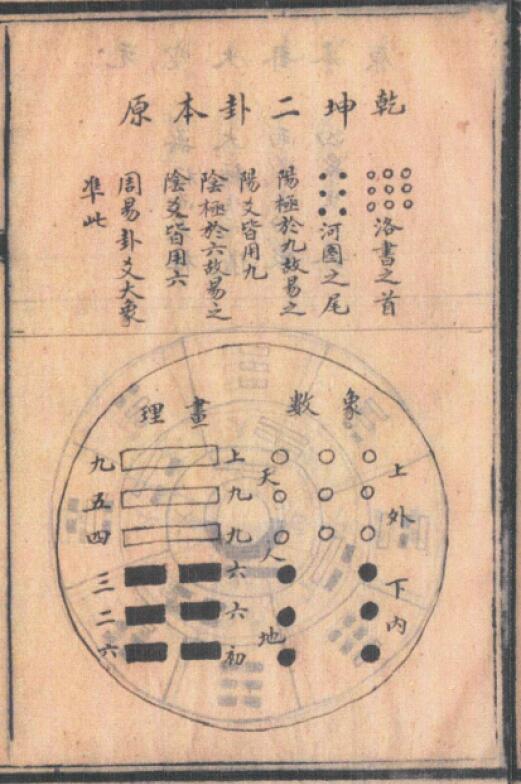 乾坤二卦本原
洛書之首
河圖之尾
陽極於九故易之
陽爻皆用九
陰極於六故易之
陰爻皆用六
周易卦爻大象
準此
象數
畫理
上外
下內
天
人
地
上九九六六初
九五四三二六